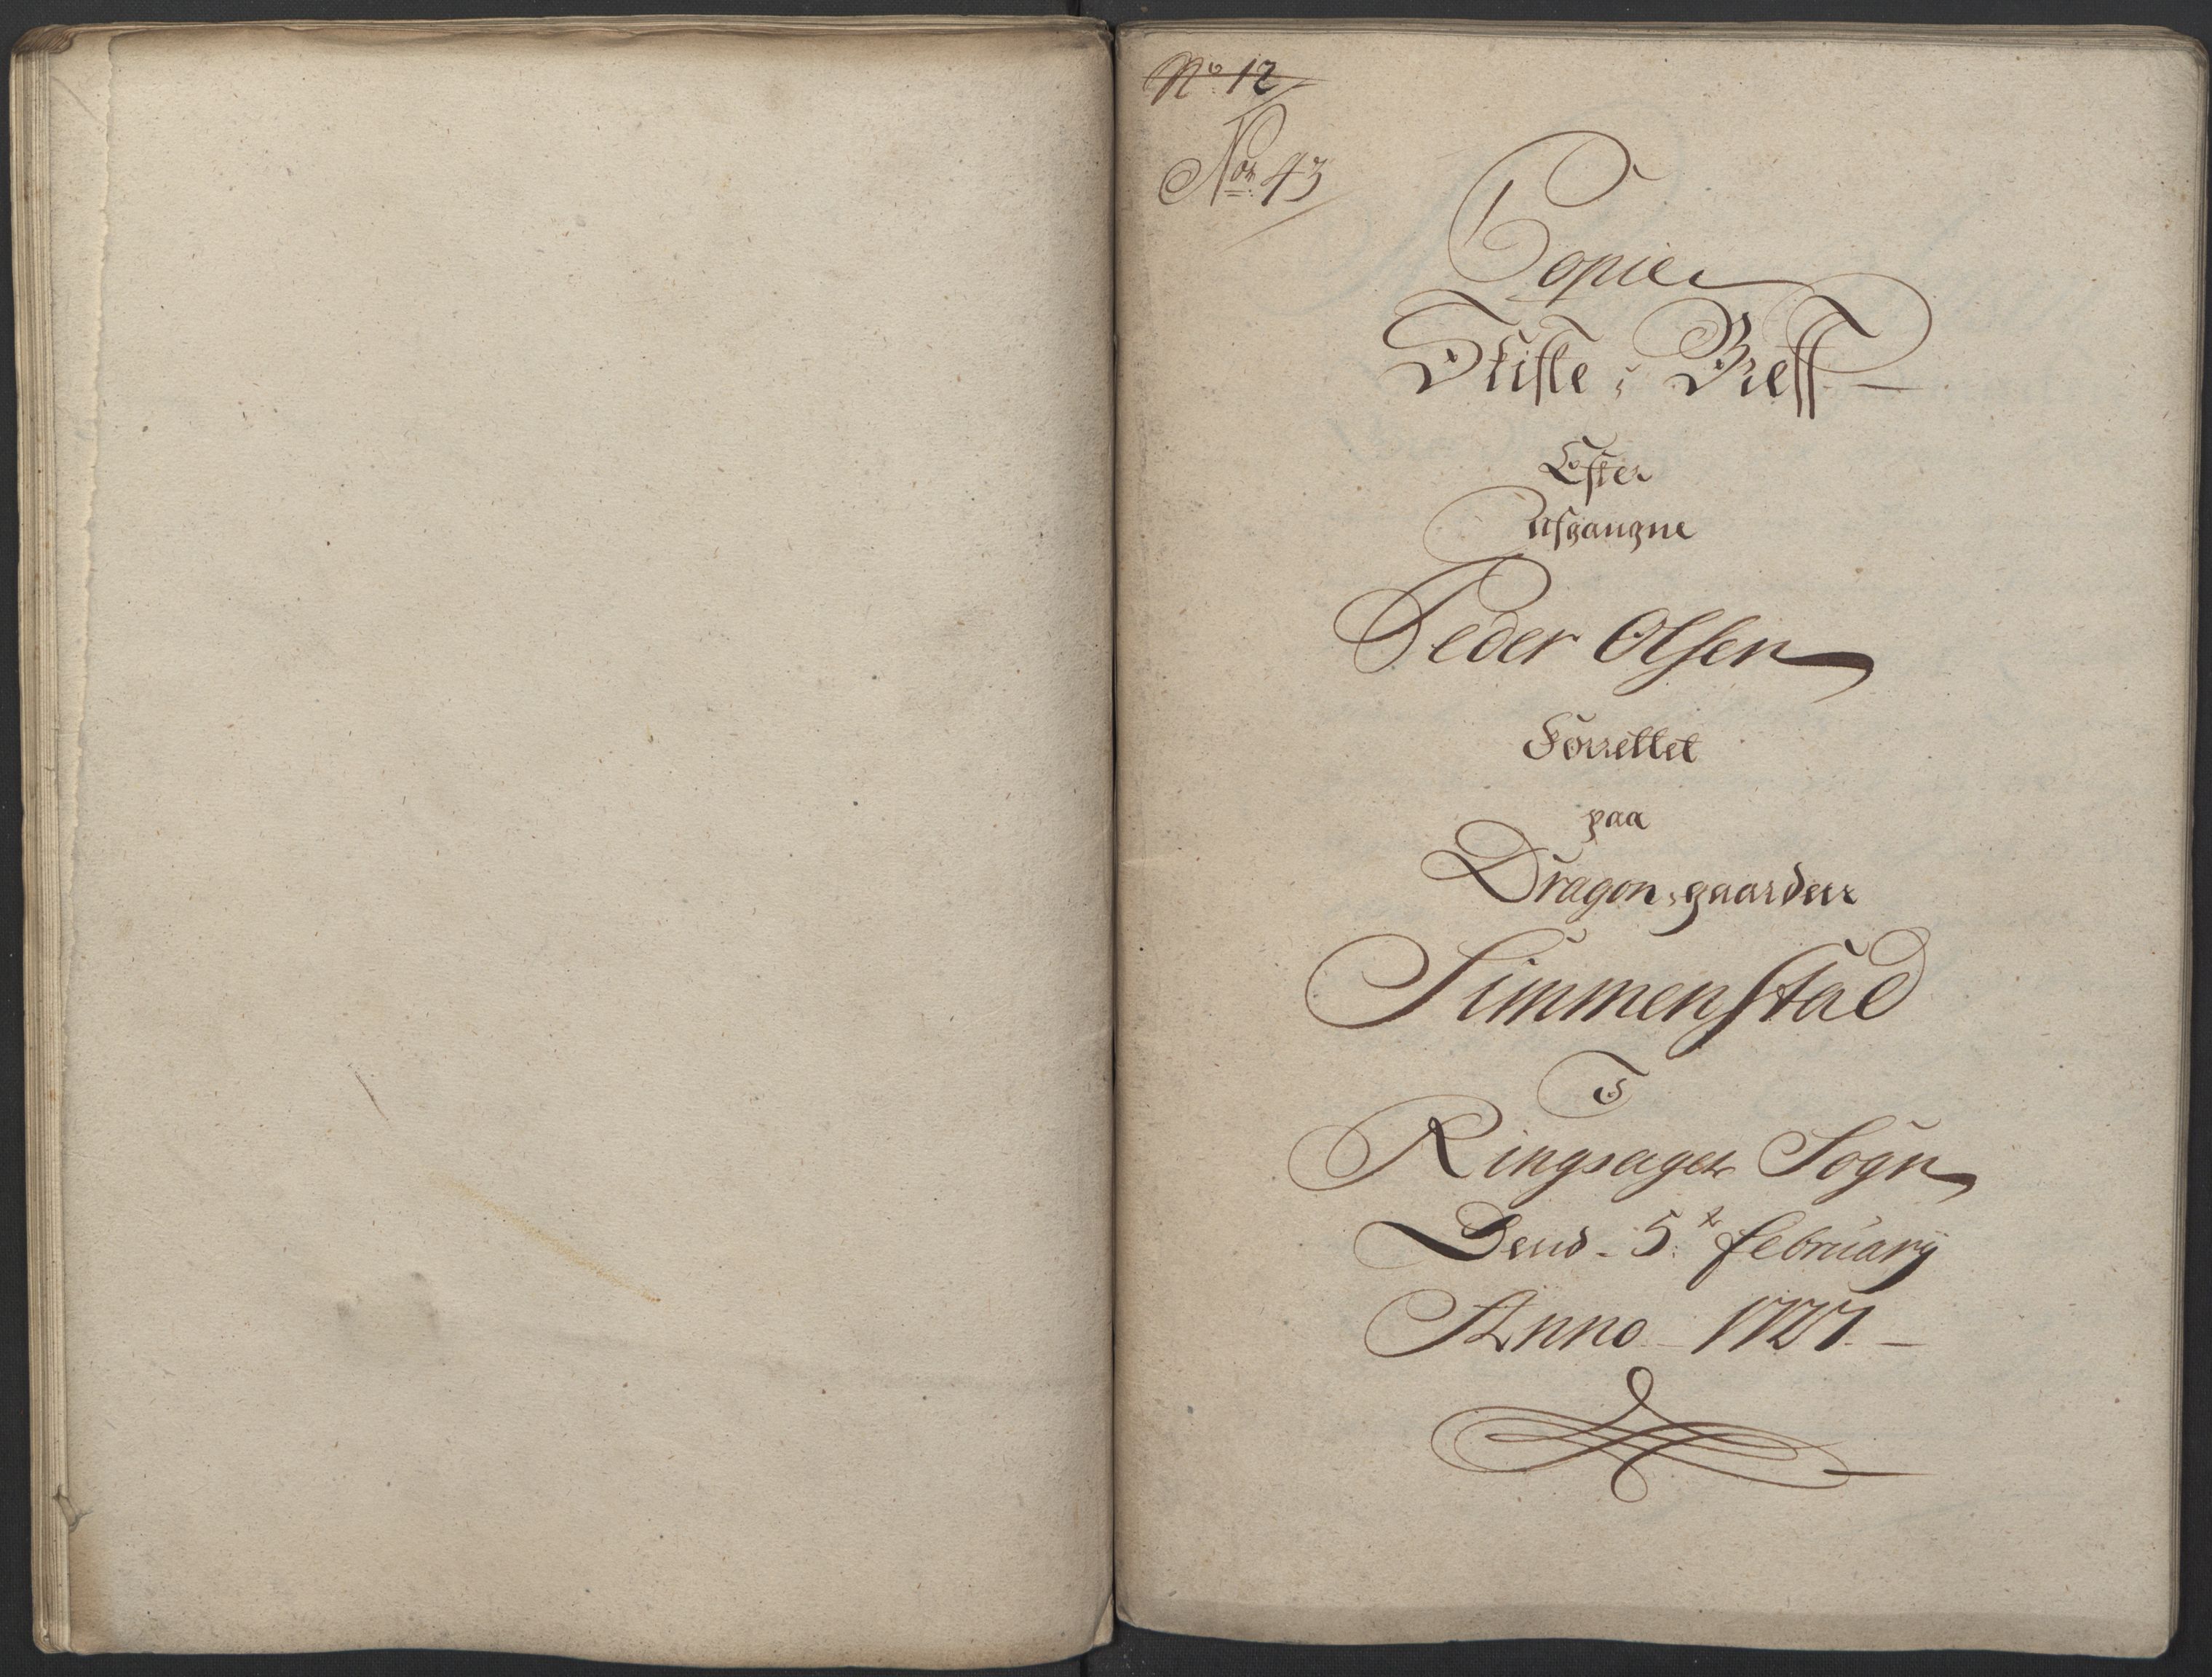 No 12
No: 43
Copie
Skifte, Breff
Efter
Afgangne
Peder Olsen
Forrettet
paa
Dragon, gaarden
Simmenstad
I
Ringsager Sogn
Dend 5te february
Anno 1727